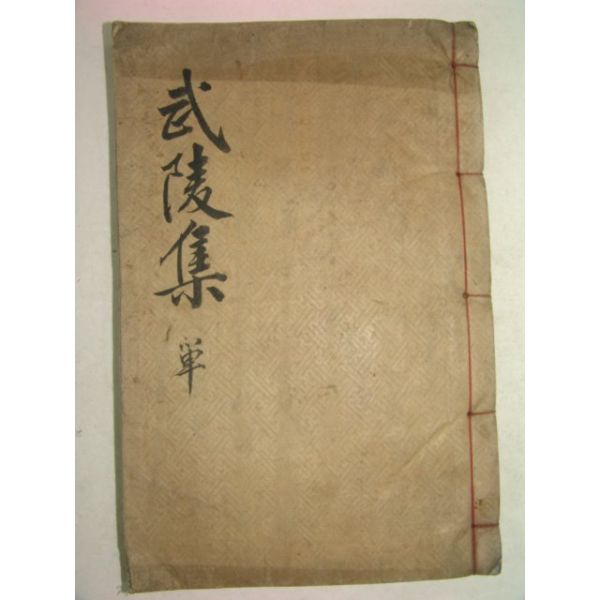 武陵集
單